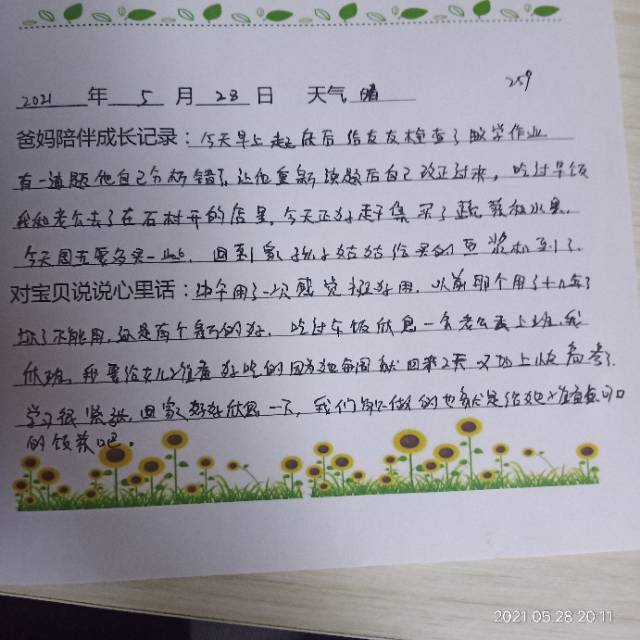 259
2021 年 5 月 28 日 天气 晴
爸妈陪伴成长记录：今天早上起床后给友友检查了数学作业
有一道题他自己分析错了，让他重新读题后自己改正过来，吃过早饭
我和老公去了在石村开的店里，今天正好赶集买了蔬菜和水果，
今天周五要多买一些，回到家孩子姑姑给买的豆浆机到了，
对宝贝说说心里话：中午用了一次感觉挺好用，以前那个用了十几年了
坏了不能用，还是有个新的好，吃过午饭休息一会老公去上班，我
休班，我要给女儿准备好吃的因为她每周就回来2天又加上快高考了
学习很紧张，回家好好休息一下，我们能做的也就是给她准备可口
的饭菜吧。
2021.05.28 20:11